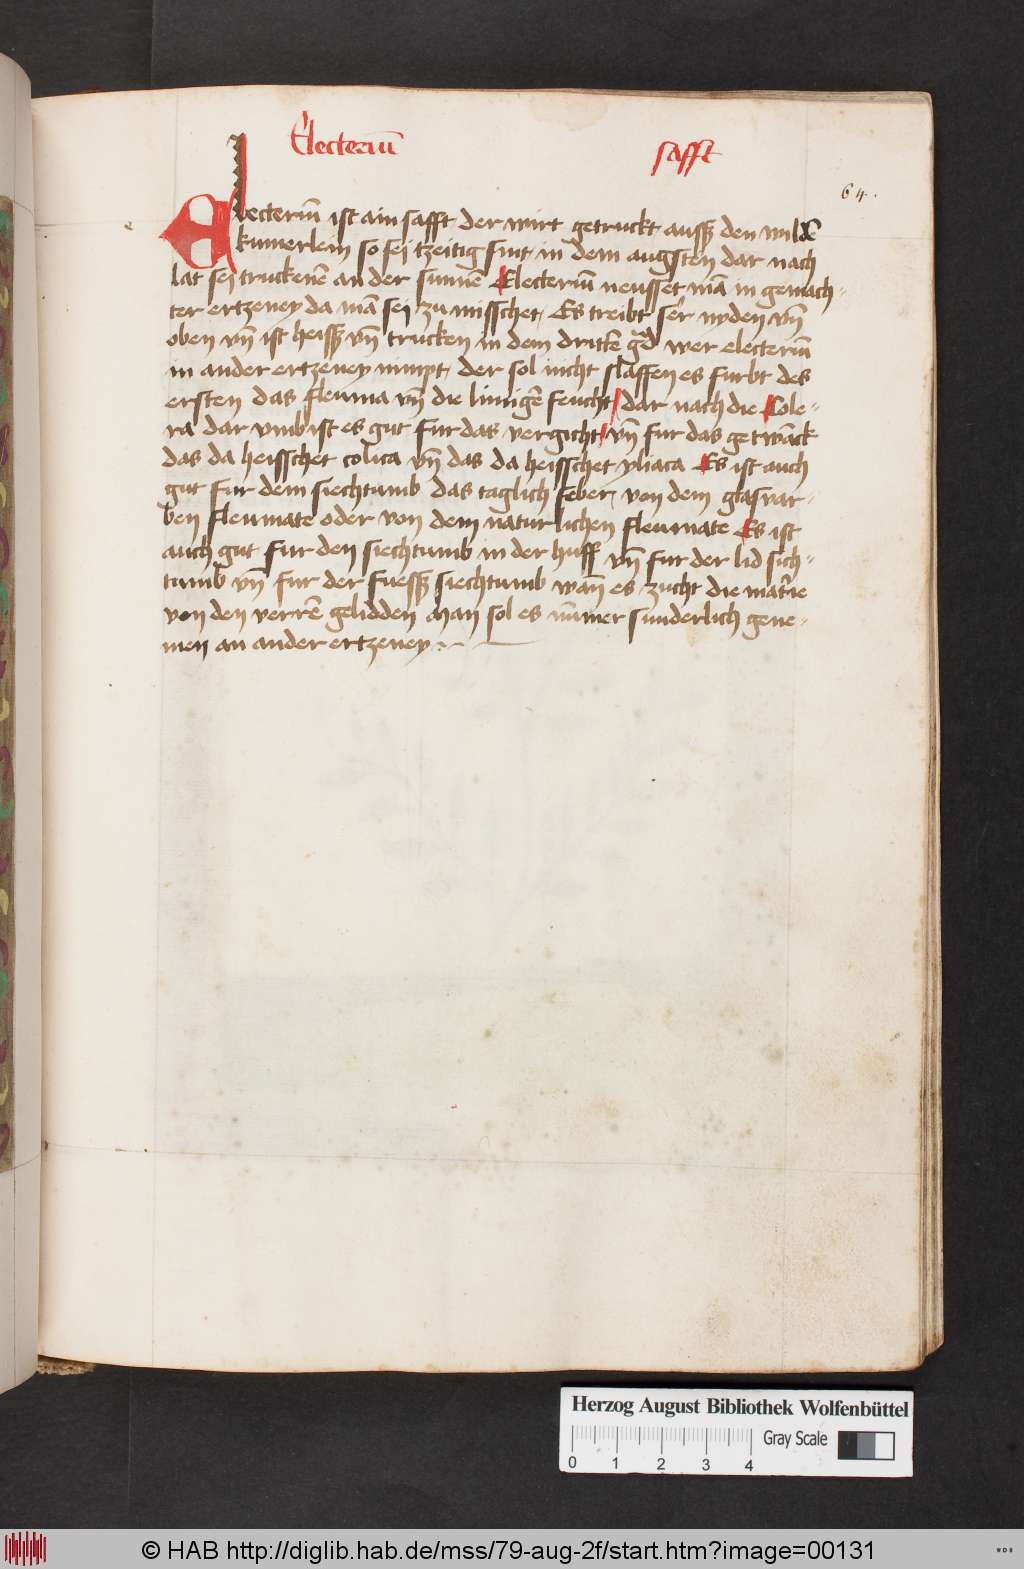 Electeriū safft
64.
Electeriū ist ain safft der wirt getruckt aussz den wildē
kumerlein so sei tzeitig sint in dem augsten dar nach
lat sei truckenē an der sunnē Electeriū neusset mā in gemach-
ter ertzeney da mā sei zu misschet, Es treibt ser nyden vn̄
oben vn̄ ist heissz vn̄ trucken in dem drittē gd wer electeriū
in ander ertzeney nimpt, der sol nicht slaffen es furbt des
ersten das fleuma vn̄ die limigē feucht dar nach die Cole-
ra dar vmb ist es gut fur das vergicht vn̄ fur das getwāck
das da heisschet colica vn̄ das da heisschet yliaca Es ist auch
gut fur dem siechtumb das taglich feber, von dem glasvar-
ben fleumate oder von dem naturlichen fleumate Es ist
auch gut fur den siechtumb in der huff vn̄ fur der lid sich-
tumb vn̄ fur der fuessz siechtumb wan̄ es zucht die mat'ie
von den verrē gelidden Man sol es nūmer sunderlich gene-
men an ander ertzeney
Herzog August Bibliothek Wolfenbüttel
Gray Scale
0 1 2 3 4
© HAB http://diglib.hab.de/mss/79-aug-2f/start.htm?image=00131